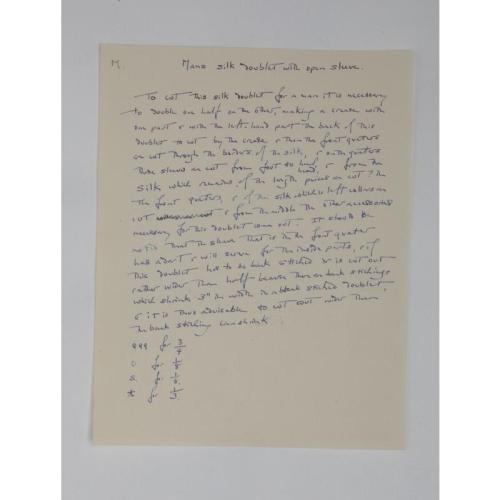 M. Mans silk doublet with open sleeve.
To cut this silk doublet for a man it is necessary
to double one half on the other, making a crease with
one part & with the left-hand part the back of this
doublet is cut by the crease & then the front quarters
are cut through the borders of the silk, & with quarters
these sleeves are cut from foot to head, & from the
silk which remains of the length pieces are cut for
the front quarters, & of the silk which is left collars are
cut & from the middle the other accessories
necessary for this doublet come out. It should be
noted that the sleeve that is in the front quarter
has a dart & will serve for the inside parts, & if
this doublet has to be back stitched it is cut out
rather wider than half because there are back stitchings
which shrink 3" in width in a back stitched doublet,
& it is thus advisable to cut out wider than
the back stitching can shrink.
999 for 3/4
O. for 1/8
S. for 1/6.
t for 1/3.